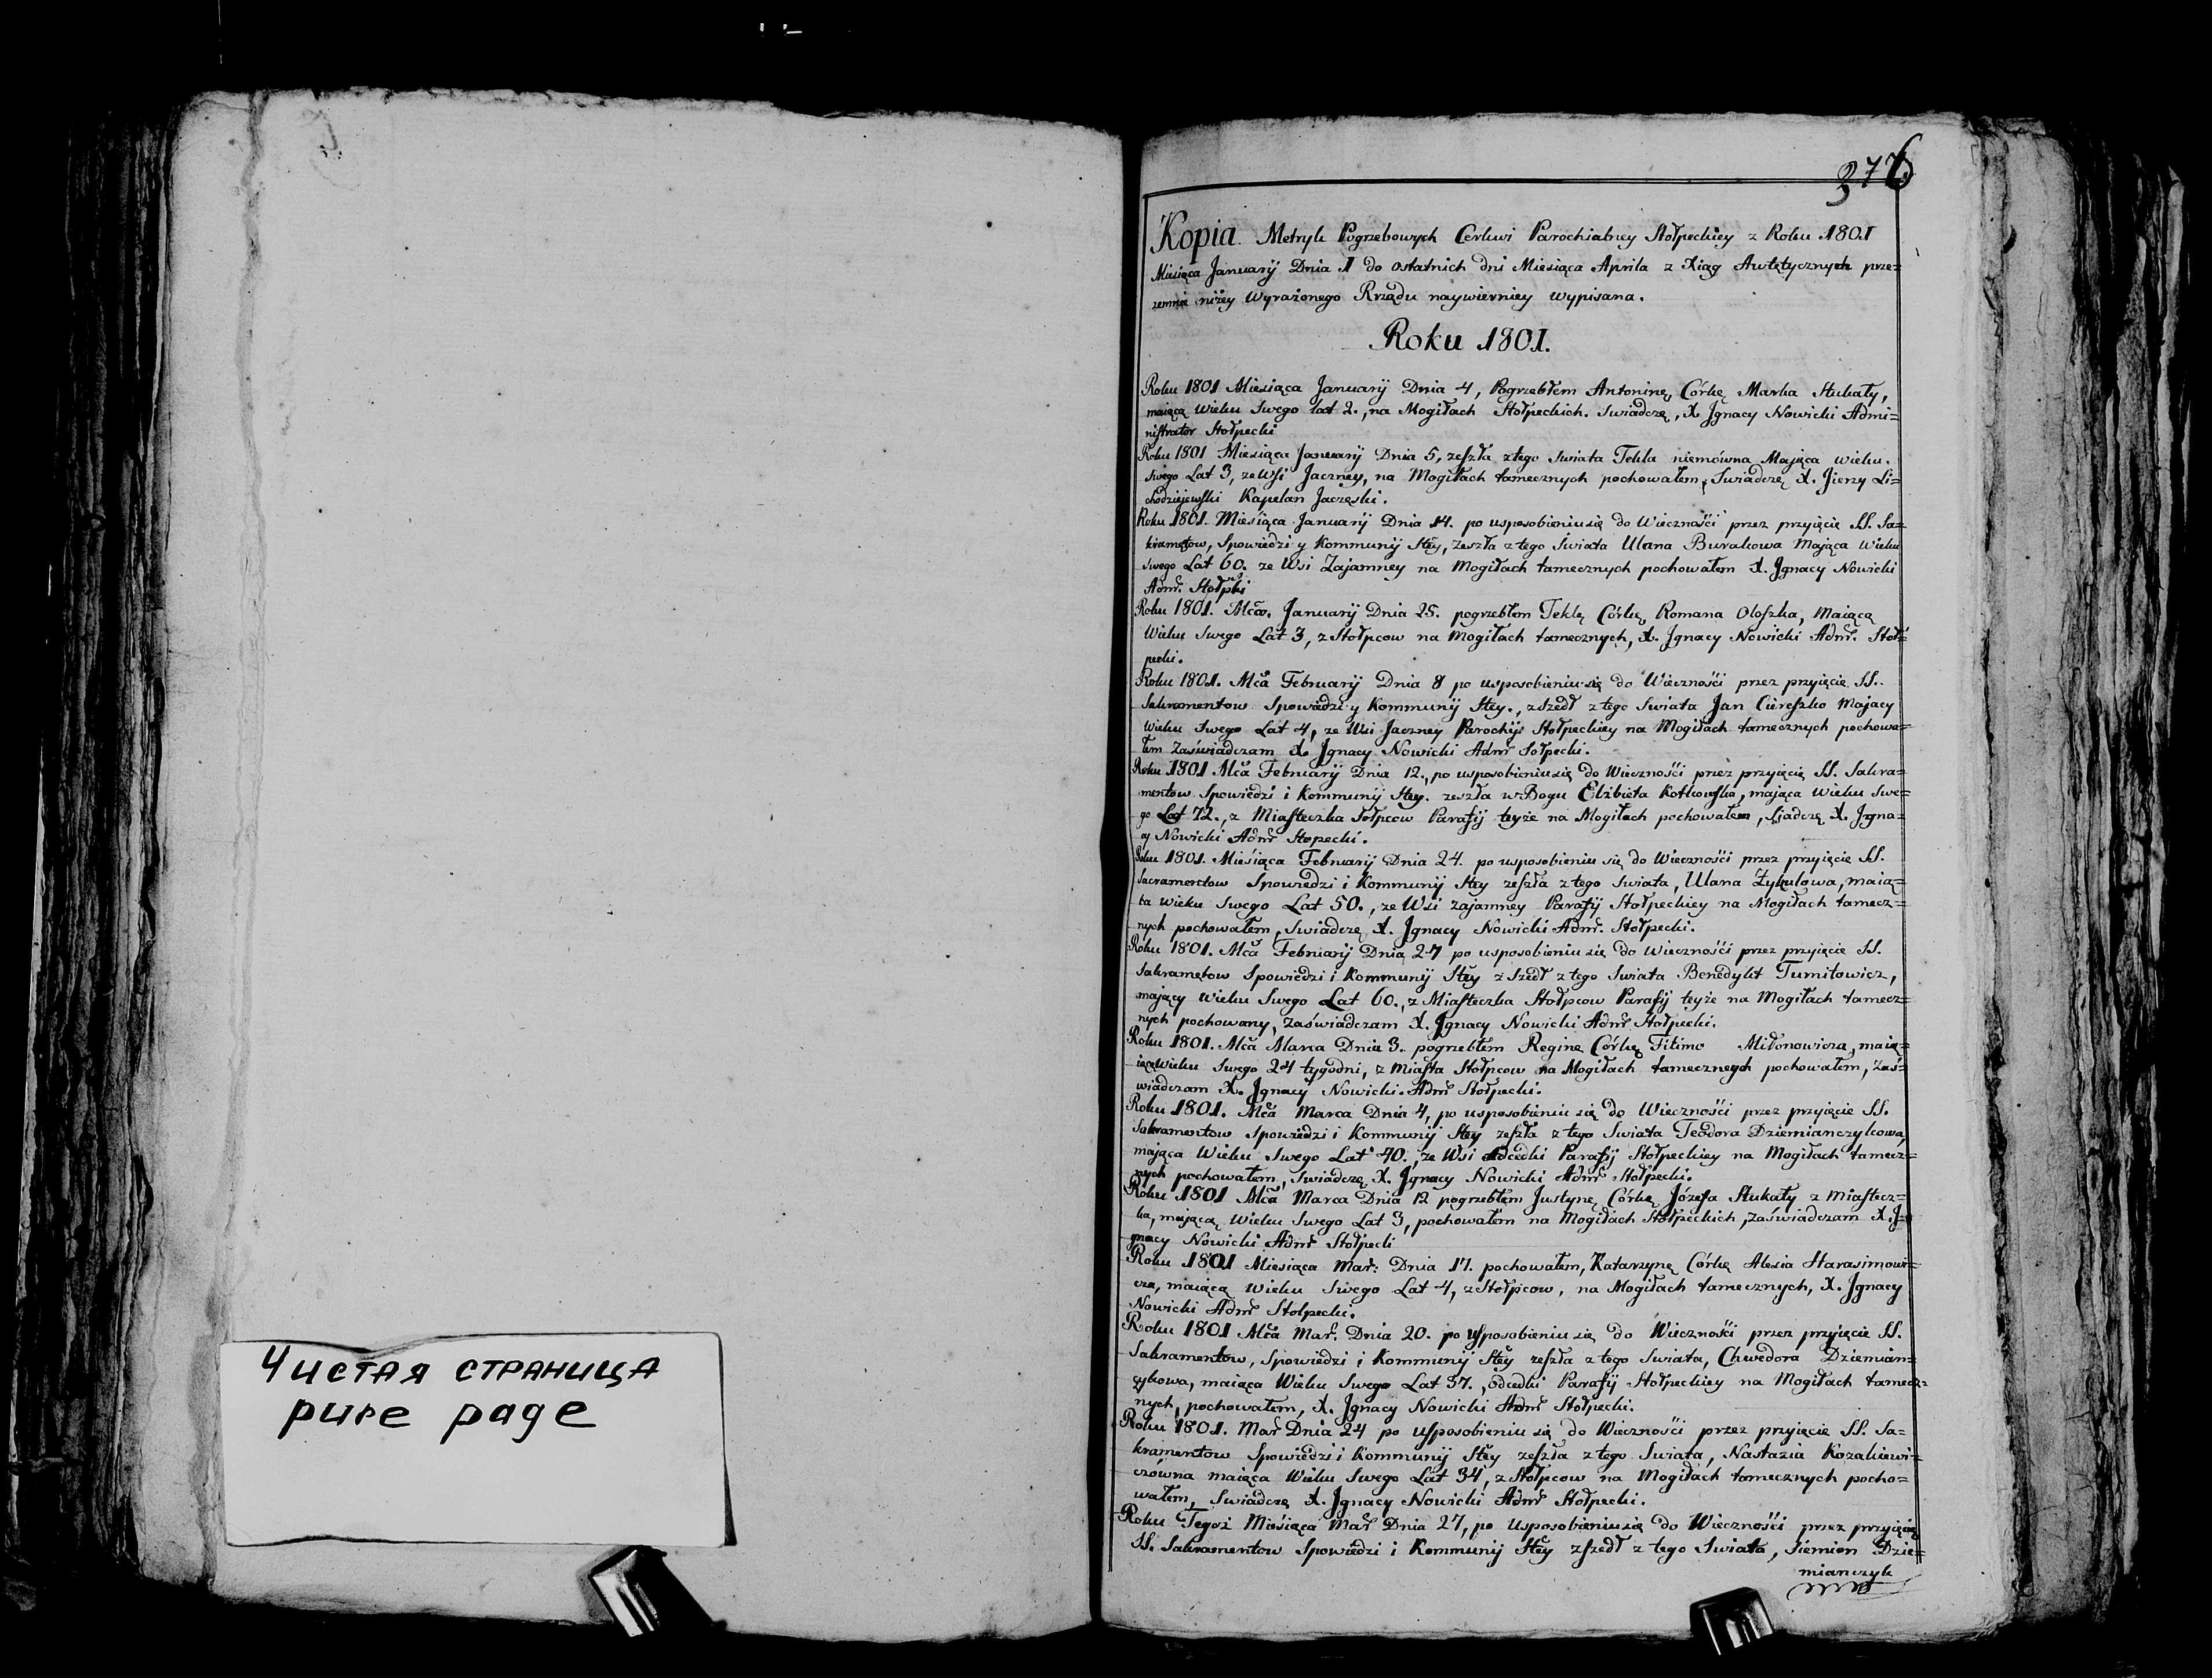 Чистая страница
pure page
376
Kopia Metryk Pogrzebowych Cerkwi Parochialney Stołpeckiey z Roku 1801
Miesiąca January Dnia 1 do ostatnich dni Miesiąca Aprila z Xiąg Awtętycznych prze=
zemnie niżey Wyrażonego Rządu naywierniey wypisana.
Roku 1801.
Roku 1801 Miesiąca January Dnia 4, Pogrzebłem Antoninę Córkę Marka Stukały,
maiącą Wieku Swego lat 2., na Mogiłach Stołpeckich. Swiadczę, X Jgnacy Nowicki Admi=
nistrator Stołpecki
Roku 1801 Miesiąca January Dnia 5, zeszła ztego Swiata Tekla niemówna Mająca wieku.
Swego Lat 3, ze Wsi Jaczney, na Mogiłach tamecznych pochowałem, Swiadczę X. Jierzy Li=
chodziejewski Kapelan Jaczęski.
Roku 1801. Miesiąca January Dnia 14. po usposobieniu się do Wieczności przez przyięcie SS. Sa=
kramętow, Spowiedzi y Kommunij Stey, Zeszła z tego Swiata Ulana Burakowa Mająca Wieku
swego Lat 60. ze Wsi Zajamney na Mogiłach tamecznych pochowałem X. Jgnacy Nowicki
Admr. Stołpki
Roku 1801. Mca. January Dnia 25. pogrzebłem Teklę Córkę Romana Oloszka, Maiącą
Wieku Swego Lat 3, z Stołpcow na Mogiłach tamecznych, X. Jgnacy Nowicki Admr. Stoł=
pecki.
Roku 1801. Mca February Dnia 8 po usposobieniu się do Wieczności przez przyięcie SS.
Sakramentow Spowiedzi y Kommunij Stey., zszedł z tego Swiata Jan Cireszko Mający
Wieku Swego Lat 4, ze Wsi Jaczney Parochij Stołpeckiey na Mogiłach tamecznych pochowa=
łem Zaświadczam X. Jgnacy Nowicki Admr Sołpecki.
Roku 1801 Mca February Dnia 12., po usposobieniu się do Wieczności przez przyięcie SS. Sakra=
mentow Spowiedzi i Kommunij Stey. zeszła w Bogu Elżbieta Kotkowska, mająca Wieku Swe=
go Lat 72., z Miasteczka Sołpcow Parafij teyże na Mogiłach pochowałem, Sjadczę X. Jgna=
cy Nowicki Admr Stopecki.
Roku 1801. Miesiąca February Dnia 24. po usposobieniu się do Wieczności przez przyięcie SS.
Sacramentow Spowiedzi i Kommunij Stey zeszła z tego Swiata, Ulana Zykulowa, maią=
ca wieku Swego Lat 50., ze Wsi Zajamney Parafij Stołpeckiey na Mogiłach tamecz=
nych pochowałem, Swiadczę X. Jgnacy Nowicki Admr. Stołpecki.
Roku 1801. Mca February Dnia 27 po usposobieniu się do Wieczności przez przyięcie SS.
Sakramętow Spowiedzi i Kommunij Stey z Szedł z tego Swiata Benedykt Tumiłowicz,
mający Wieku Swego Lat 60., z Miasteczka Stołpcow Parafij teyże na Mogiłach tamecz=
nych pochowany, Zaświadczam X. Jgnacy Nowicki Admr Stołpecki.
Roku 1801. Mca Marca Dnia 3. pogrzebłem Reginę Córkę Fitimo Miłonowicza, maią=
cą Wieku Swego 24 tygodni, z Miasta Stołpcow na Mogiłach tamecznych pochowałem, Zaś=
wiadczam X. Jgnacy Nowicki. Admr Stołpecki.
Roku 1801. Mca Marca Dnia 4, po usposobieniu się do Wieczności przez przyięcie SS.
Sakramentow Spowiedzi i Kommunij Stey zeszła z tego Swiata Teodora Dziemianczykowa,
mająca Wieku Swego Lat 40., ze Wsi Parafij Stołpeckiey na Mogiłach tamecz=
nych pochowałem, Swiadczę X. Jgnacy Nowicki Admr Stołpecki.
Roku 1801 Mca Marca Dnia 12 pogrzebłem Justynę Córkę Józefa Stukały z Miastecz=
ka, mającą Wieku Swego Lat 3, pochowałem na Mogiłach Stołpeckich, Zaświadczam X. J=
gnacy Nowicki Admr Stołpecki
Roku 1801 Miesiąca Mar: Dnia 17. pochowałem, Katarzynę Córkę Alexia Harasimowi=
cza, maiącą Wieku Swego Lat 4, z Stołpcow, na Mogiłach tamecznych, X. Jgnacy
Nowicki Admr Stolpecki.
Roku 1801 Mca Mar. Dnia 20. po usposobieniu się do Wieczności przez przyięcie SS.
Sakramentow, Spowiedzi i Kommunij Stey zeszła z tego Swiata, Chwedora Dziemian=
czykowa, maiąca Wieku Swego Lat 37., Parafij Stołpeckiey na Mogiłach tamecz=
nych, pochowałem, X. Jgnacy Nowicki Admr Stołpecki.
Roku 1801. Mar Dnia 24 po usposobieniu się do Wieczności przez przyięcie SS. Sa=
kramentow Spowiedzi i Kommunij Stey zeszła z tego Swiata, Nastazia Kozakiewi=
czówna maiąca Wieku Swego Lat 34, z Stołpcow na Mogiłach tamecznych pocho=
wałem, Swiadczę X. Jgnacy Nowicki Admr Stołpecki.
Roku Tegoż Miesiąca Mar Dnia 27, po Usposobieniu się do Wieczności przez przyięcie
SS. Sakramentow Spowiedzi i Kommunij Stey zszedł z tego Swiata, Siemion Dzie=
mianczyk